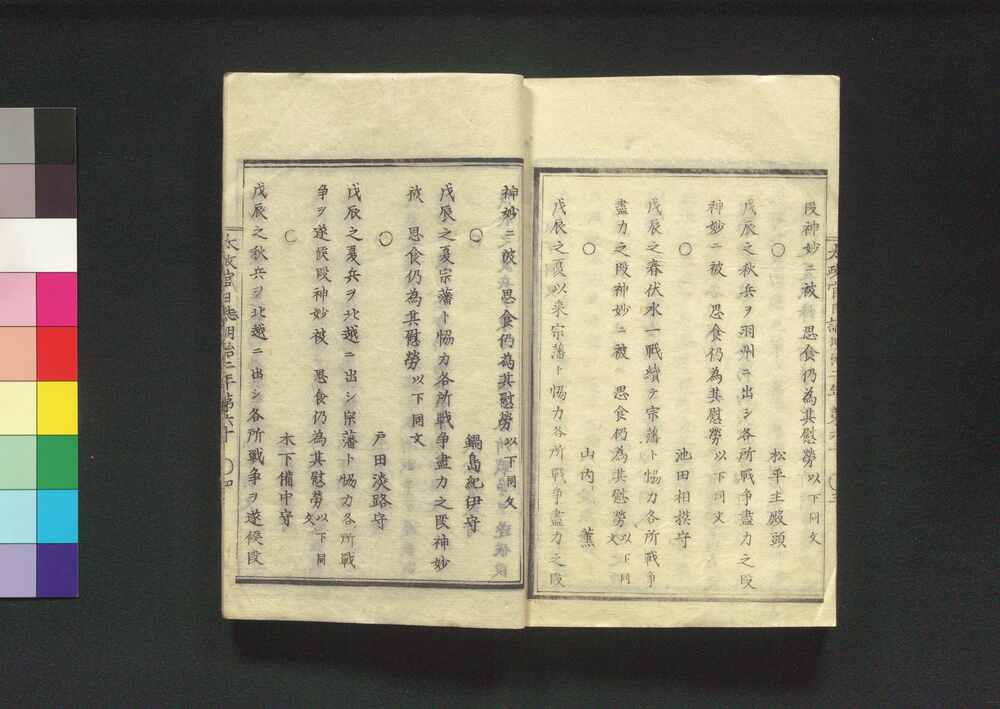 段神妙ニ被　思食仍為其慰勞以下同文
○　松平主殿頭
戊辰之秋兵ヲ羽州ニ出シ各所戰争盡力之段
神妙ニ被　思食仍為其慰勞以下同文
○　池田相摸守
戊辰之春伏水一戰續テ宗藩ト恊力各所戰争
盡力之段神妙ニ被　思食仍為其慰勞以下同文
○　山内　薫
戊辰之夏以来宗藩ト恊力各所戰争盡力之段
神妙ニ被　思食仍為其慰勞以下同文
○　鍋島紀伊守
戊辰之夏宗藩ト恊力各所戰争盡力之段神妙
被　思食仍為其慰勞以下同文
○　戸田淡路守
戊辰之夏兵ヲ北越ニ出シ宗藩ト恊力各所戰
争ヲ遂候段神妙被　思食仍為其慰勞以下同文
○　木下備中守
戊辰之秋兵ヲ北越ニ出シ各所戰争ヲ遂候段
太政官日誌明治二年第六十　○四